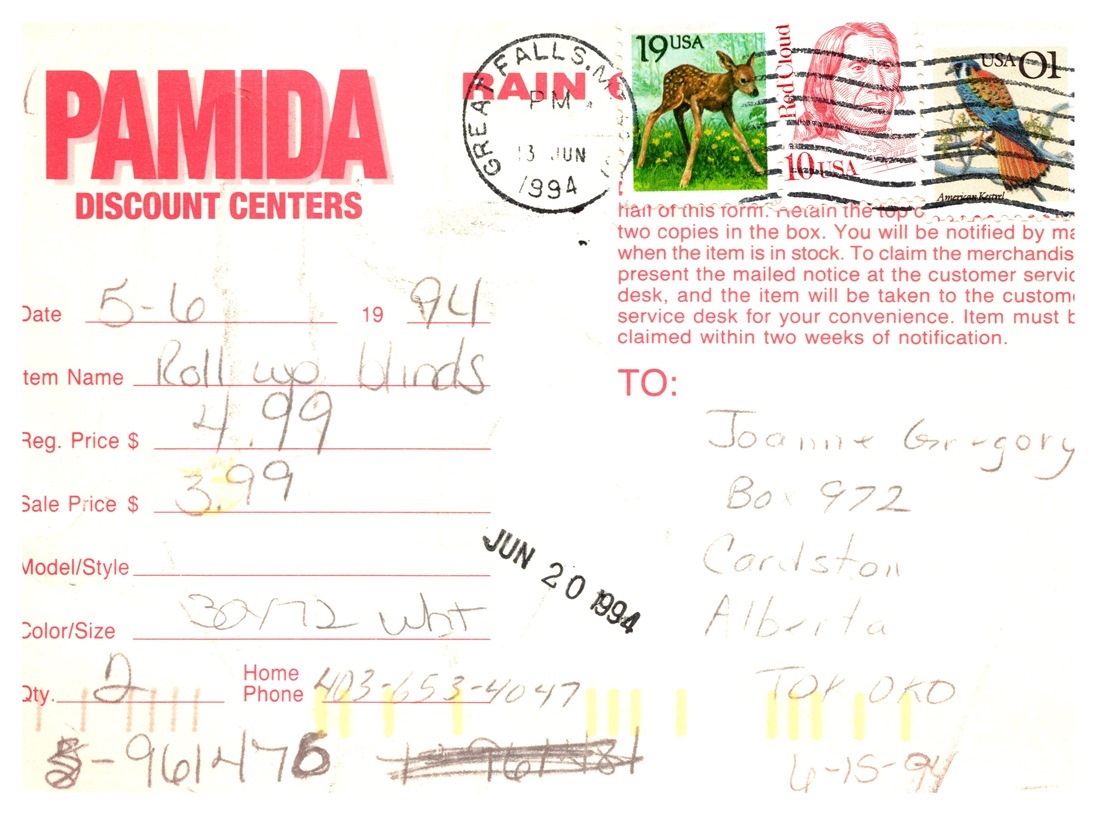 PAMIDA
DISCOUNT CENTERS
RAIN
GREAT FALLS, M
PM
13 JUN
1994
19 USA
Red Cloud
10 USA
USA 01
American Kestrel
half of this form. Retain the top
two copies in the box. You will be notified by ma
when the item is in stock. To claim the merchandis
present the mailed notice at the customer servic
desk, and the item will be taken to the custome
service desk for your convenience. Item must b
claimed within two weeks of notification.
Date 5-6 19 94
Item Name Roll up blinds
Reg. Price $ 4.99
Sale Price $ 3.99
Model/Style
Color/Size 30x72 wht
Qty. 2 Home Phone 403-653-4047
-961476
JUN 20 1994
TO:
Joanne Gregory
Box 972
Cardston
Alberta
TOK OKO
6-15-94